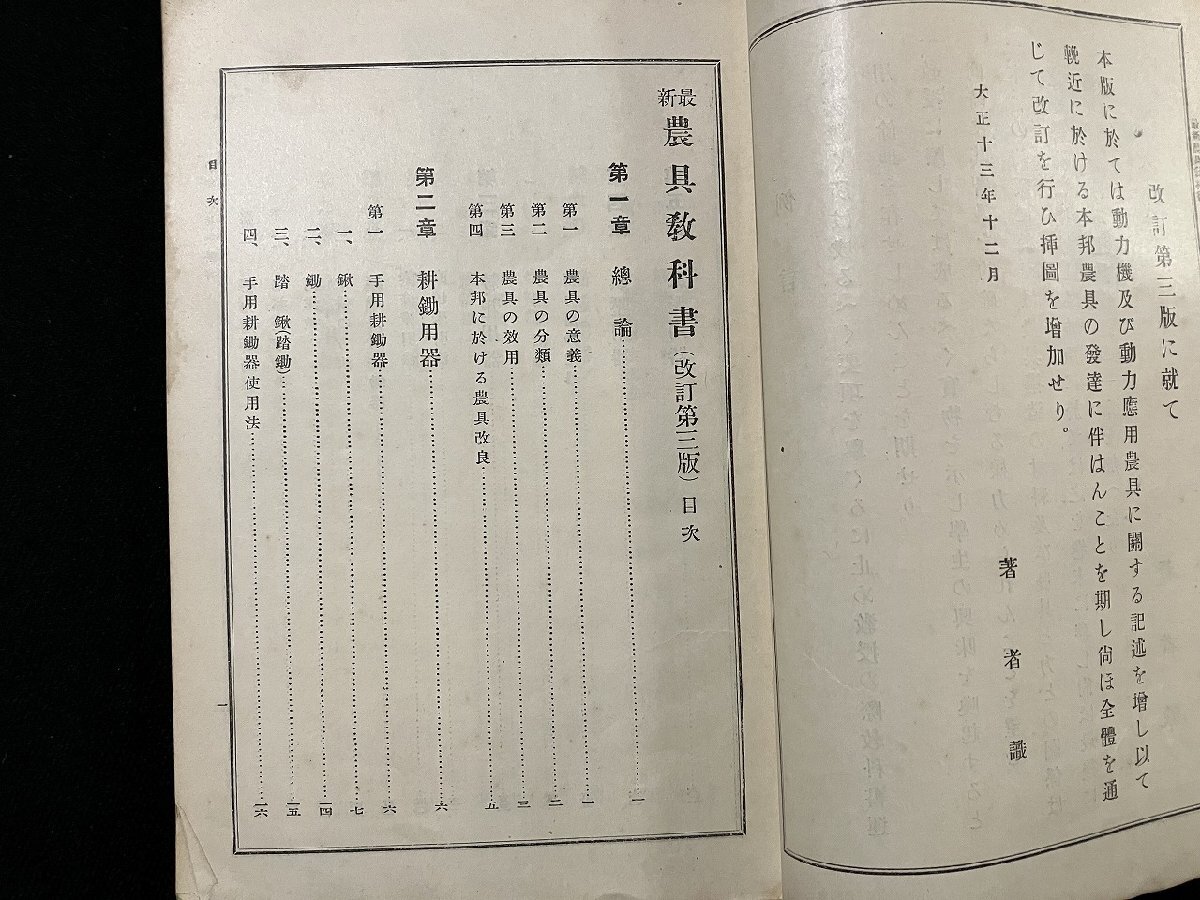 改訂第三版に就て
本版に於ては動力機及び動力應用農具に關する記述を增し以て
輓近に於ける本邦農具の發達に伴はんことを期し尙ほ全體を通
じて改訂を行ひ揷圖を增加せり。
大正十三年十二月
著者識
最新農具敎科書(改訂第三版)目次
第一章 總論……一
第一 農具の意義……一
第二 農具の分類……二
第三 農具の效用……三
第四 本邦に於ける農具改良……五
第二章 耕鋤用器……六
第一 手用耕鋤器……六
一、鍬……七
二、鋤……一四
三、踏鍬(踏鋤)……一五
四、手用耕鋤器使用法……一六
目次
一